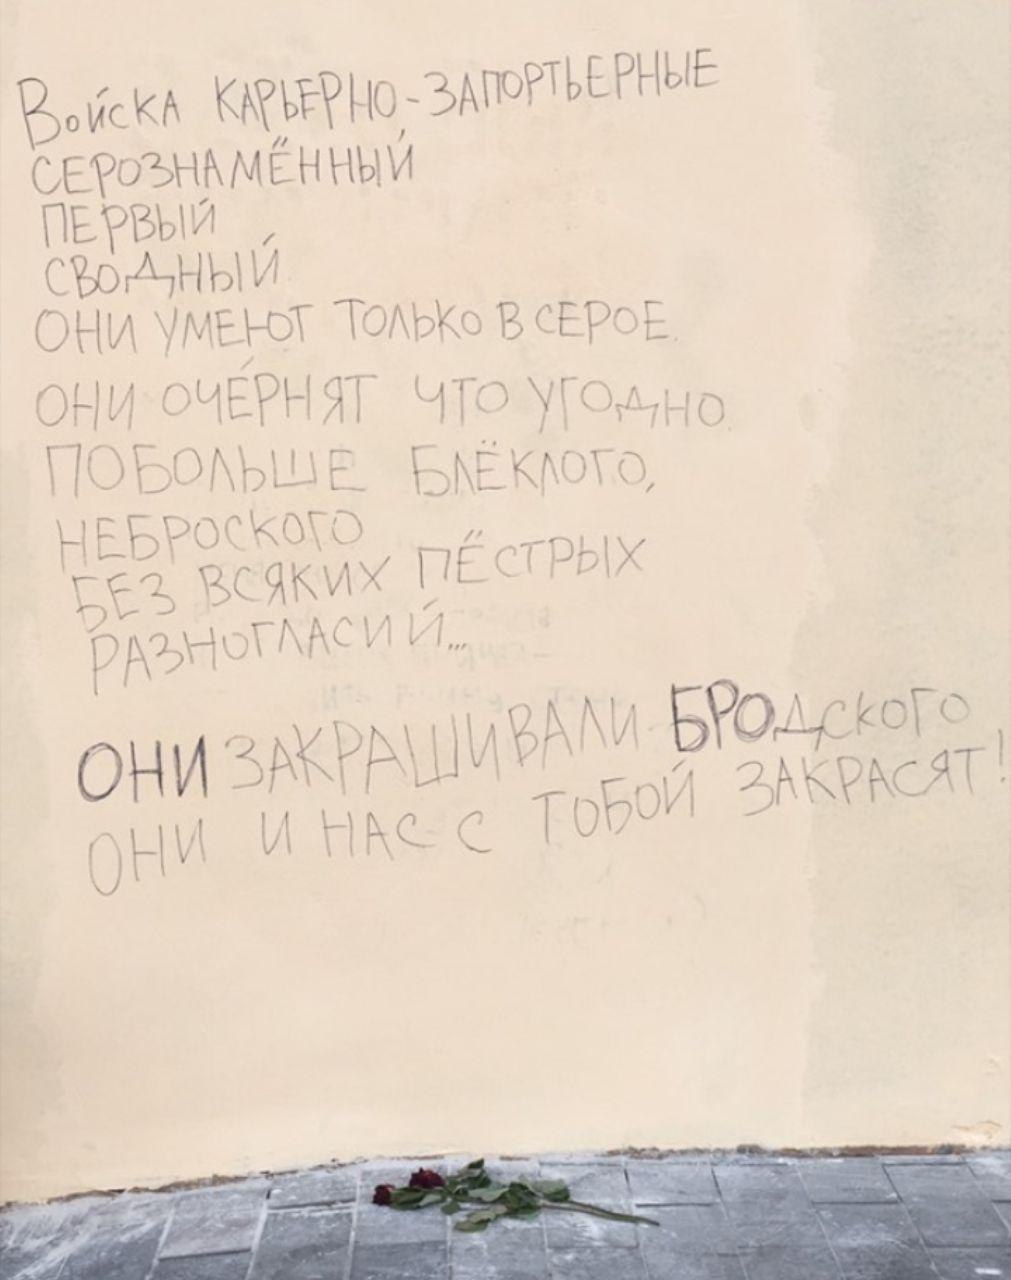 Войска КАРЬЕРНО-ЗАПОРТЬЕРНЫЕ
СЕРОЗНАМЁННЫЙ
ПЕРВЫЙ
СВОДНЫЙ
ОНИ УМЕЮТ ТОЛЬКО В СЕРОЕ.
ОНИ ОЧЕ́РНЯТ ЧТО УГОДНО.
ПОБОЛЬШЕ БЛЁКЛОГО,
НЕБРОСКОГО
БЕЗ ВСЯКИХ ПЁСТРЫХ
РАЗНОГЛАСИЙ...
ОНИ ЗАКРАШИВАЛИ БРОДСКОГО
ОНИ И НАС С ТОБОЙ ЗАКРАСЯТ!